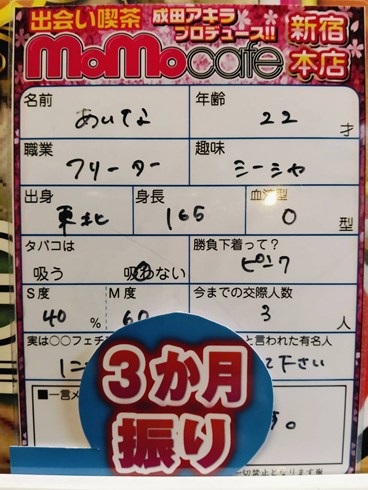 出会い喫茶 成田アキラ プロデュース!! 新宿本店
MoMocafe
名前 あいてな 年齢 22 才
職業 フリーター 趣味 シーシャ
出身 東北 身長 165 血液型 O 型
タバコは 吸う 吸わない 勝負下着って? ピンク
S度 40 % M度 60 今までの交際人数 3 人
実は○○フェチ と言われた有名人
に て下さい
3か月
振り
■一言メ す。
切禁止となります※